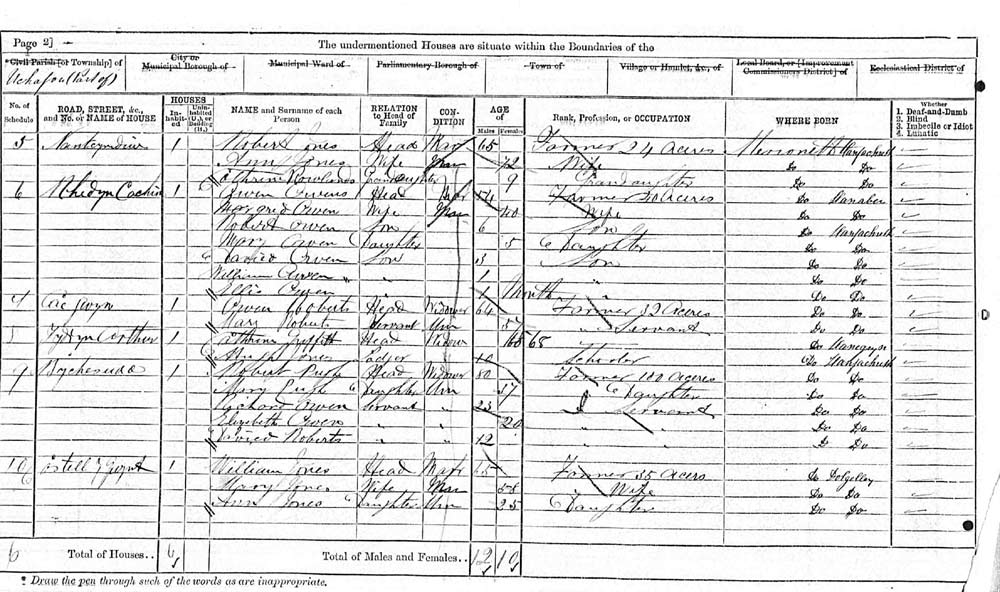 Page 2]
The undermentioned Houses are situate within the Boundaries of the
* Civil Parish [or Township] of
City or Municipal Borough of
Municipal Ward of
Parliamentary Borough of
Town of
Village or Hamlet, &c., of
Local Board, or [Improvement Commissioners District] of
Ecclesiastical District of
No. of Schedule
ROAD, STREET, &c., and No. or NAME of HOUSE
HOUSES
In-habit-ed
Unin-habited (U.), or Building (B.)
NAME and Surname of each Person
RELATION to Head of Family
CON-DITION
AGE of
Males Females
Rank, Profession, or OCCUPATION
WHERE BORN
Whether
1. Deaf-and-Dumb
2. Blind
3. Imbecile or Idiot
4. Lunatic
5 1 Robert Jones Head Mar 65 Farmer 24 Acres
Ann Jones Wife Mar 72 Wife Do Do
Cathrine Rowlands Grandaughter 9 Grandaughter Do Do
6 1 Owen Owens Head Mar 54 Farmer Acres Do
Owen Wife Mar 40 Wife Do Do
Robert Owen Son 6 Son Do
Mary Owen Daughter 5 Daughter Do Do
David Owen Son 3 Son Do Do
William Owen " 1 " Do Do
Ellis Owen " 1 Month " Do Do
1 Owen Roberts Head Widower 64 Farmer 32 Acres Do Do
Mary Roberts Servant Unn 57 " Servant Do Do
1 Cathrine Griffith Head Widow 68 " Do
Hugh Jones Lodger 10 Scholar Do
1 Robert Pugh Head Widower 80 Farmer 100 Acres Do Do
Mary Pugh Daughter Unn 37 Daughter Do Do
Richard Owen Servant " 23 Servant Do Do
Elizabeth Owen " " 20 " " Do Do
David Roberts " " 12 " " Do Do
10 1 William Jones Head Mar 65 Farmer 35 Acers Do Dolgelley
Mary Jones Wife Mar 58 Wife Do Do
Ann Jones Daughter Unn 25 Daughter Do Do
6 Total of Houses.. 6 Total of Males and Females.. 12 10
* Draw the pen through such of the words as are inappropriate.